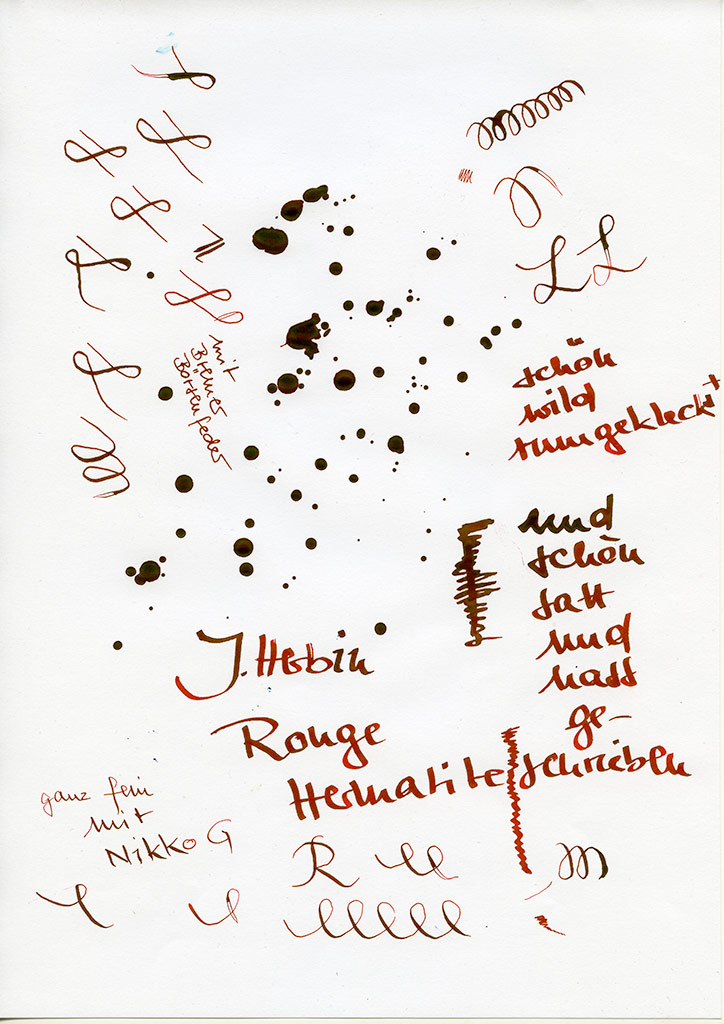 L L
mit
Bremer
Börsenfeder
schön
wild
rumgekleckst
und
schön
satt
und
nass
ge-
schrieben
J. Herbin
Rouge
Hermatite
ganz fein
mit
Nikko G
R